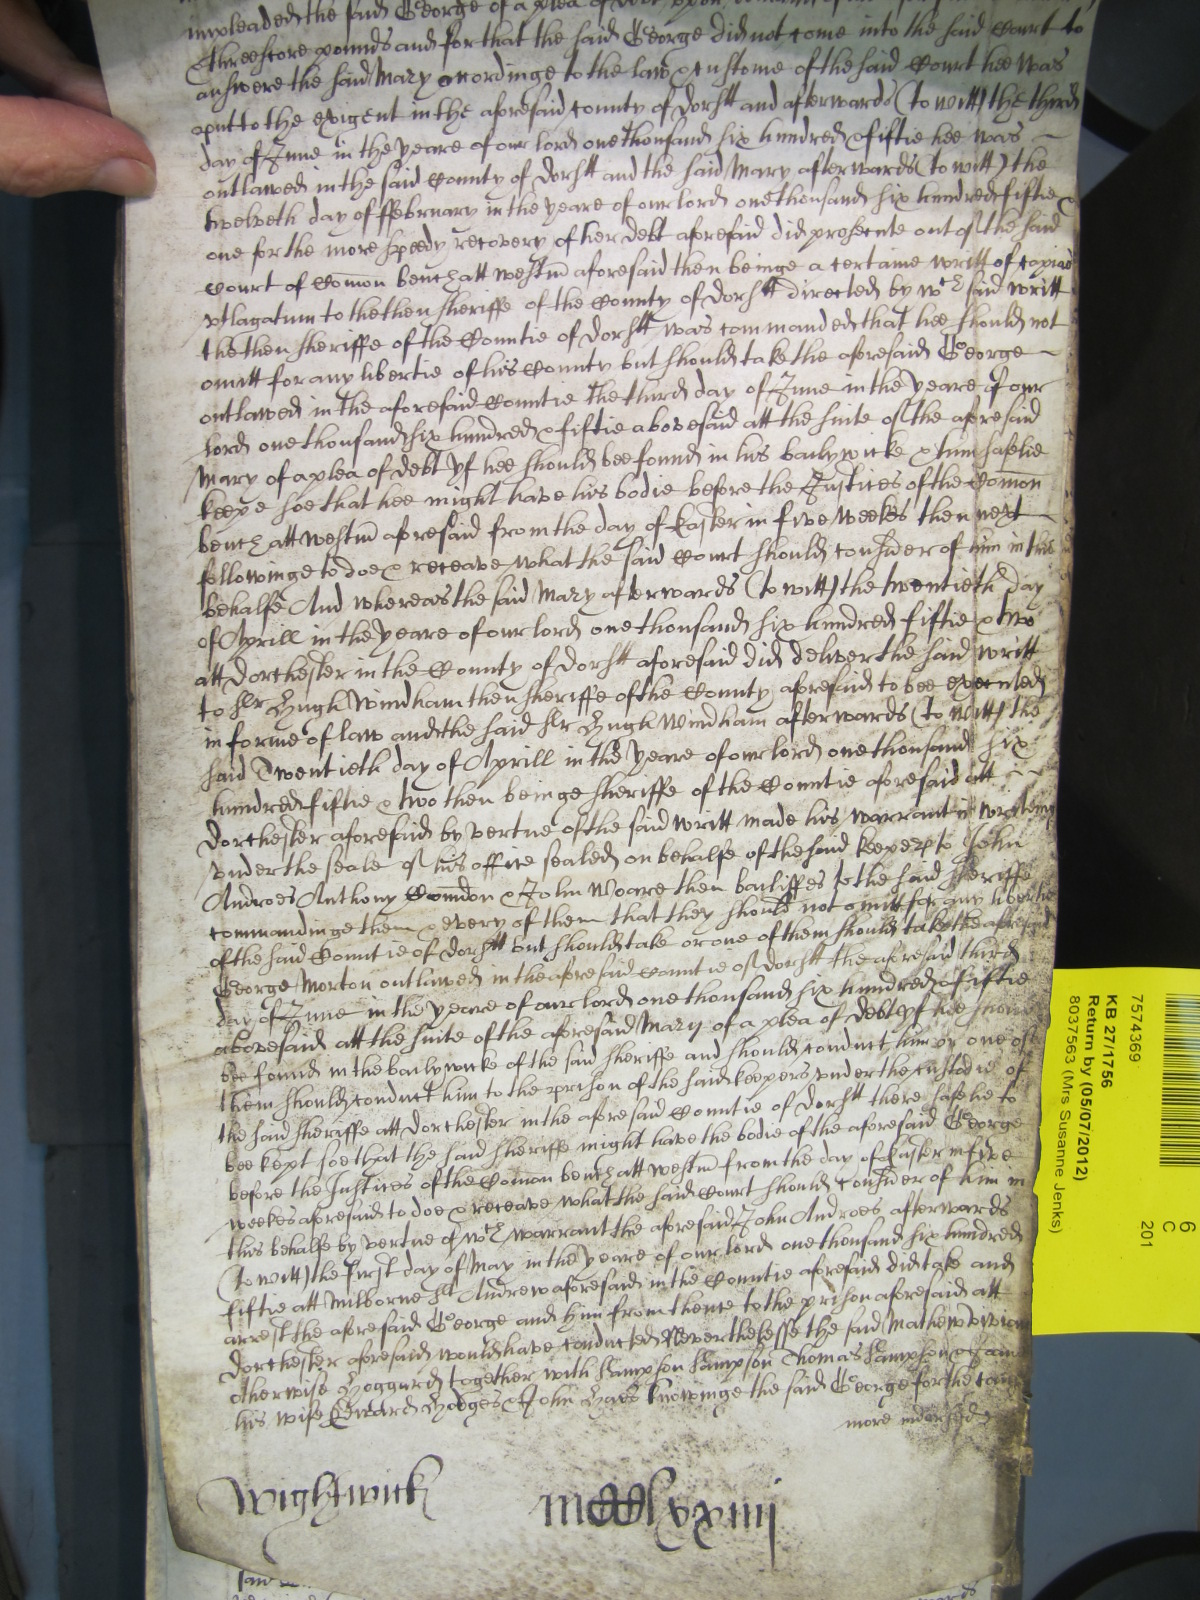 impleaded the said George of a plea of
threescore pounds and for that the said George did not come into the said Court to
answere the said Mary accordinge to the law & custome of the said Court hee was
put to the exigent in the aforesaid county of Dorstt and afterwards (to witt) the third
day of June in the yeare of our lord one thousand six hundred & fiftie hee was
outlawed in the said County of Dorstt and the said Mary afterwards (to witt) the
twelveth day of ffebruary in the yeare of our lord one thousand six hundred fiftie &
one for the more speedy recovery of her debt aforesaid did prosecute out of the said
Court of Com̄on bench att Westm̄ aforesaid then beinge a certaine writt of capias
vtlagatum to the then sheriffe of the County of Dorstt directed by wch said writt
the then sheriffe of the Countie of Dorstt was commanded that hee should not
omitt for any libertie of his County but should take the aforesaid George
outlawed in the aforesaid Countie the third day of June in the yeare of our
lord one thousand six hundred & fiftie abovesaid att the suite of the aforesaid
Mary of a plea of debt yf hee should bee found in his bailywicke & him safelie
keepe soe that hee might have his bodie before the Justices of the Com̄on
bench att Westm̄ aforesaid from the day of Easter in five weekes then next
followinge to doe & receave what the said Court should consider of him in this
behalfe And whereas the said Mary afterwards (to witt) the twentieth day
of Aprill in the yeare of our lord one thousand six hundred fiftie & two
att Dorchester in the County of Dorstt aforesaid did deliver the said writt
to Sr Hugh Windham then sheriffe of the County aforesaid to bee executed
in forme of law and the said Sr Hugh Windham afterwards (to witt) the
said Twentieth day of Aprill in the yeare of our lord one thousand six
hundred fiftie & two then beinge sheriffe of the Countie aforesaid att
Dorchester aforesaid by vertue of the said writt made his warrant in writeing
vnder the seale of his office sealed on behalfe of the said keepers to John
Androes Anthony & John Moare then bailiffes to the said sheriffe
commandinge them & every of them that they should not omitt for any libertie
of the said Countie of Dorstt but should take or one of them should take the aforesaid
George Morton outlawed in the aforesaid Countie of Dorstt the aforesaid third
day of June in the yeare of our lord one thousand six hundred & fiftie
abovesaid att the suite of the aforesaid Mary of a plea of debt yf hee should
bee found in the bailywicke of the said sheriffe and should conduct him or one of
them should conduct him to the prison of the said keepers vnder the custodie of
the said sheriffe att Dorchester in the aforesaid Countie of Dorstt there safelie to
bee kept soe that the said sheriffe might have the bodie of the aforesaid George
before the Justices of the Com̄on bench att Westm̄ from the day of Easter in five
weekes aforesaid to doe & receave what the said Court should consider of him in
this behalfe by vertue of wch warrant the aforesaid John Androes afterwards
(to witt) the first day of May in the yeare of our lord one thousand six hundred
fiftie att Milborne St Andrew aforesaid in the Countie aforesaid did take and
arrest the aforesaid George and him from thence to the prison aforesaid att
Dorchester aforesaid would have conducted Neverthelesse the said Mathew
otherwise Hoggard together with Sampson Sampson Thomas Sampson
his wife Edward Hodges & John knowinge the said George for the
more indorsed
Wightwick
mccclxxiiij
7574369
KB 27/1756
Return by (05/07/2012)
8037563 (Mrs Susanne Jenks)
6
C
201